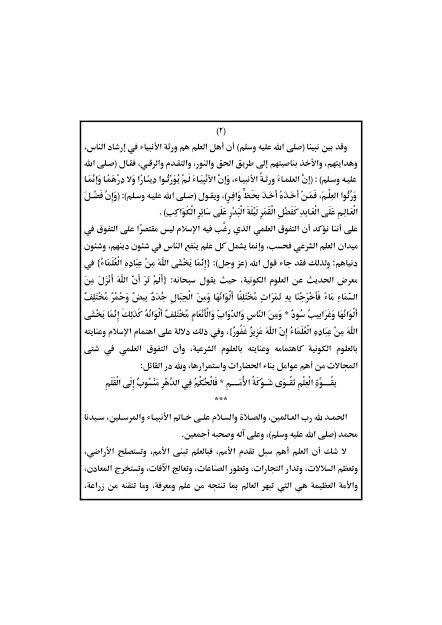 (٢)
وقد بين نبينا (صلى الله عليه وسلم) أن أهل العلم هم ورثة الأنبياء في إرشاد الناس،
وهدايتهم، والأخذ بناصيتهم إلى طريق الحق والنور، والتقدم والرقي، فقال (صلى الله
عليه وسلم) : (إنَّ العلماءَ ورثةُ الأنبياء، وَإِنَّ الأَنْبِيَاءَ لَمْ يُوَرِّثُوا دِينَارًا وَلا دِرْهَمًا وَإِنَّمَا
وَرَّثُوا العِلْمَ، فَمَنْ أَخَذَهُ أَخَذَ بِحَظٍّ وَافِرٍ)، ويقول (صلى الله عليه وسلم): (وَإِنَّ فَضْلَ
الْعَالِمِ عَلَى الْعَابِدِ كَفَضْلِ الْقَمَرِ لَيْلَةَ الْبَدْرِ عَلَى سَائِرِ الْكَوَاكِبِ) .
على أننا نؤكد أن التفوق العلمي الذي رغَّب فيه الإسلام ليس مقتصرًا على التفوق في
ميدان العلم الشرعي فحسب، وإنما يشمل كل علم ينفع الناس في شئون دينهم، وشئون
دنياهم؛ ولذلك فقد جاء قول الله (عز وجل): {إِنَّمَا يَخْشَى اللَّهَ مِنْ عِبَادِهِ الْعُلَمَاءُ} في
معرض الحديث عن العلوم الكونية، حيث يقول سبحانه: {أَلَمْ تَرَ أَنَّ اللَّهَ أَنْزَلَ مِنَ
السَّمَاءِ مَاءً فَأَخْرَجْنَا بِهِ ثَمَرَاتٍ مُخْتَلِفًا أَلْوَانُهَا وَمِنَ الْجِبَالِ جُدَدٌ بِيضٌ وَحُمْرٌ مُخْتَلِفٌ
أَلْوَانُهَا وَغَرَابِيبُ سُودٌ * وَمِنَ النَّاسِ وَالدَّوَابِّ وَالْأَنْعَامِ مُخْتَلِفٌ أَلْوَانُهُ كَذَلِكَ إِنَّمَا يَخْشَى
اللَّهَ مِنْ عِبَادِهِ الْعُلَمَاءُ إِنَّ اللَّهَ عَزِيزٌ غَفُورٌ}، وفي ذلك دلالة على اهتمام الإسلام وعنايته
بالعلوم الكونية كاهتمامه وعنايته بالعلوم الشرعية، وأن التفوق العلمي في شتى
المجالات من أهم عوامل بناء الحضارات واستمرارها، ولله در القائل:
بِقُــوَّةِ الْعِلْمِ تَقْـوَى شَـوْكَةُ الأُمَـمِ * فَالْحُكْمُ فِي الدَّهْرِ مَنْسُوبٌ إِلَى الْقَلَمِ
***
الحمد لله رب العالمين، والصلاة والسلام على خاتم الأنبياء والمرسلين، سيدنا
محمد (صلى الله عليه وسلم)، وعلى آله وصحبه أجمعين.
لا شك أن العلم أهم سبل تقدم الأمم، فبالعلم تبنى الأمم، وتستصلح الأراضي،
وتعظم السلالات، وتدار التجارات، وتطور الصناعات، وتعالج الآفات، وتستخرج المعادن،
والأمة العظيمة هي التي تبهر العالم بما تنتجه من علم ومعرفة، وما تتقنه من زراعة،